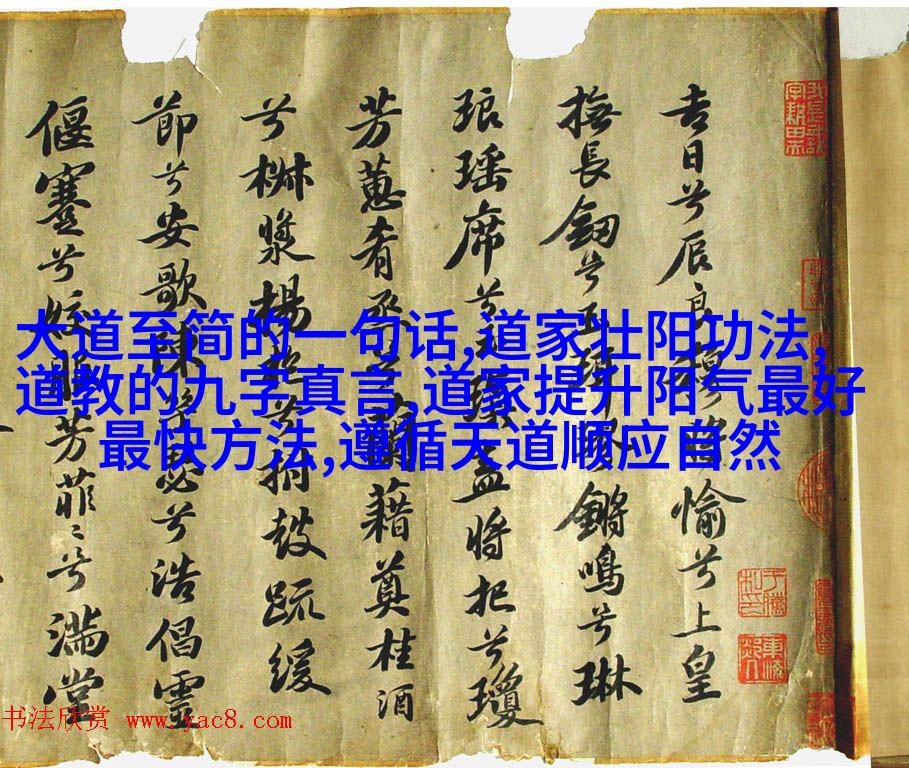 吉日兮辰良穆將愉兮上皇
撫長劔兮玉珥璆鏘鳴兮琳
琅瑶席兮玉瑱盍將把兮瓊
芳蕙肴烝兮蘭藉奠桂酒
兮椒漿揚枹兮拊鼓疏緩
節兮安歌陳竽瑟兮浩倡靈
偃蹇兮姣服芳菲〻兮滿堂
大道至简的一句话,道家壮阳功法,
道教的九字真言,道家提升阳气最好
最快方法,遵循天道顺应自然
书法欣赏 www.yac8.com